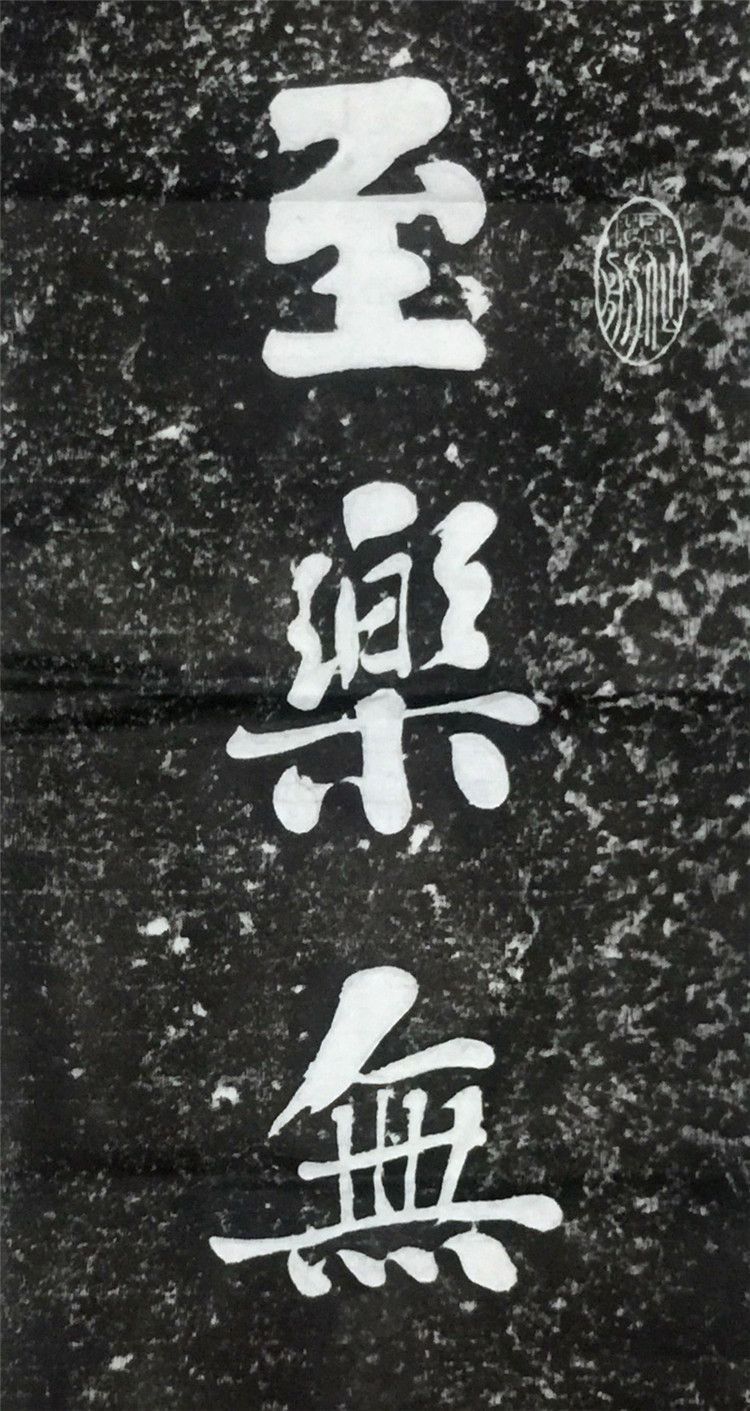 至樂無